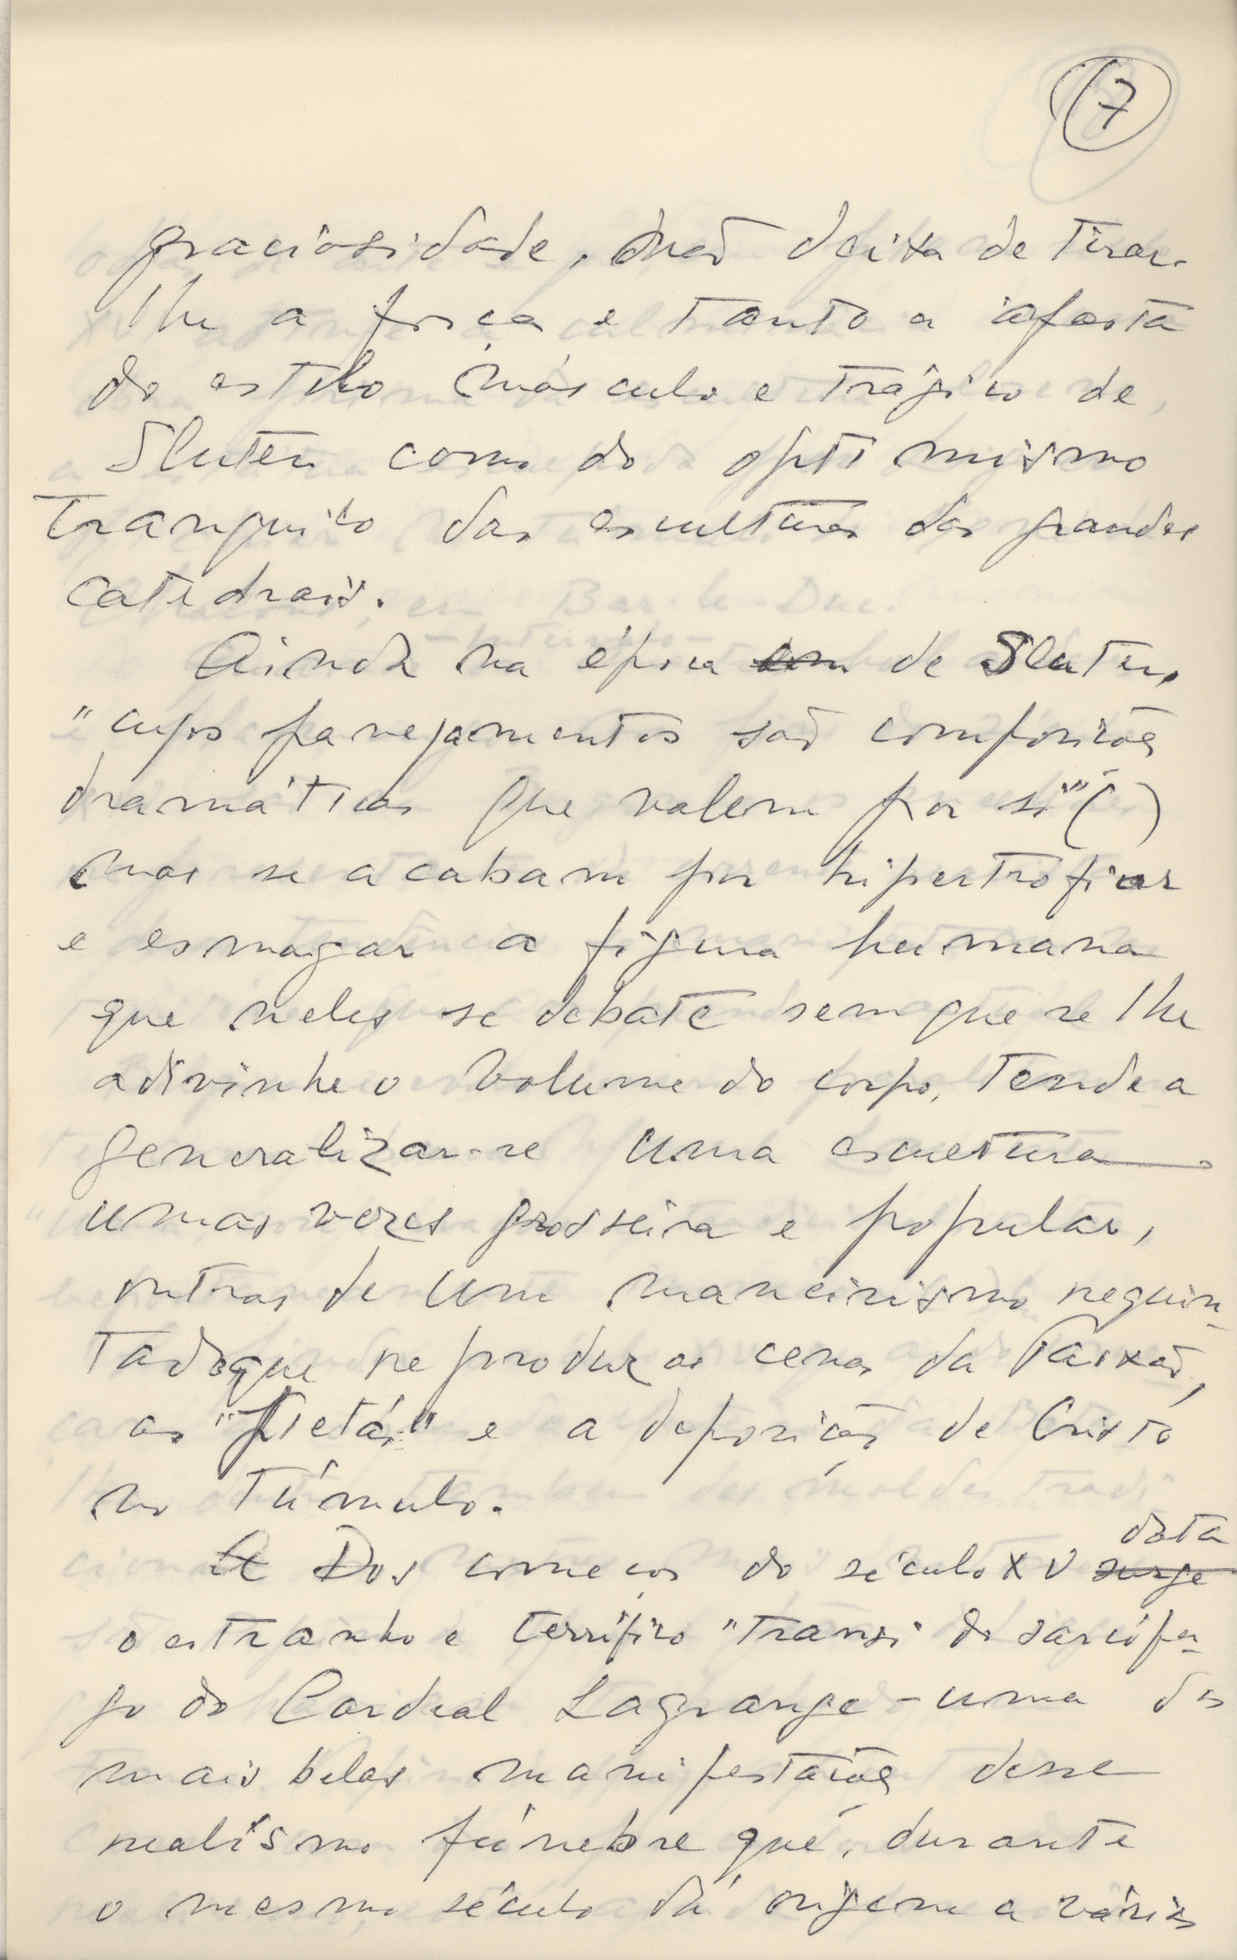 7
graciosidade, não deixa de tirar-
lhe a força e tanto a afasta
do estilo másculo e trágico de
Sluter como do optimismo
tranquilo das esculturas das grandes
catedrais.
Ainda na época em de Sluter,
"cujos panejamentos são composições
dramáticas que valem por si" ( )
mas se acabam por hipertrofiar
e esmagar a figura humana
que neles se debate sem que se lhe
adivinhe o volume do corpo, tende a
generalizar-se uma escultura
umas vezes grosseira e popular,
outras de um maneirismo requin-
tado que reproduz as cenas da Paixão,
as "Pietás" e a deposição de Cristo
no túmulo.
A Dos começos do século XV surge data
o estranho e terrífico "transi" do sarcófa-
go do Cardeal Lagrange - uma das
mais belas manifestações desse
realismo fúnebre que, durante
o mesmo século dá origem a vários